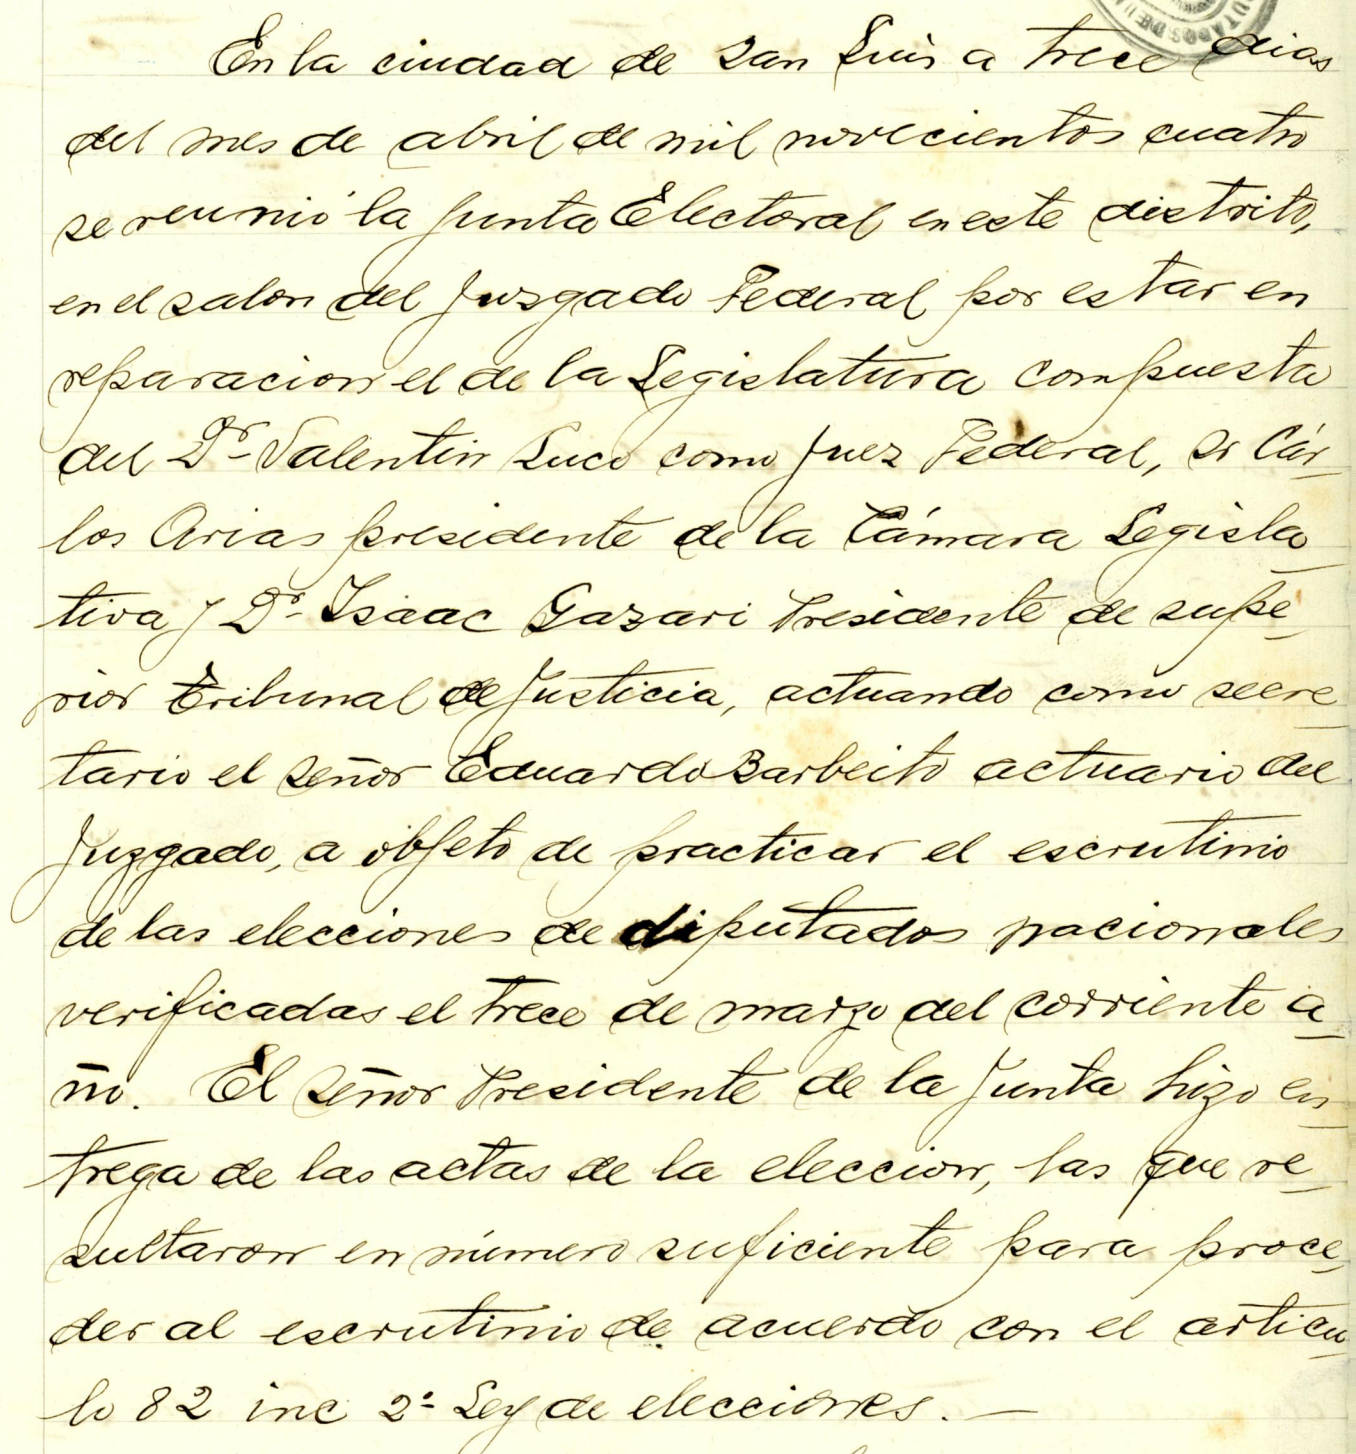 En la ciudad de San Luis a trece dias
del mes de abril de mil novecientos cuatro
se reunió la Junta Electoral en este distrito,
en el salon del Juzgado Federal por estar en
reparacion el de la Legislatura compuesta
del Dr Valentin Luco como Juez Federal, Sr Cár_
los Arias presidente de la Cámara Legisla_
tiva y Dr Isaac Gazari Presidente de supe_
rior Tribunal de Justicia, actuando como secre_
tario el señor Eduardo Barbeito actuario del
Juzgado, a objeto de practicar el escrutinio
de las elecciones de diputados nacionales
verificadas el trece de marzo del corriente a_
ño. El señor Presidente de la Junta hizo en_
trega de las actas de la eleccion, las que re_
sultaron en número suficiente para proce_
der al escrutinio de acuerdo con el articu_
lo 82 inc 2º Ley de elecciones. —